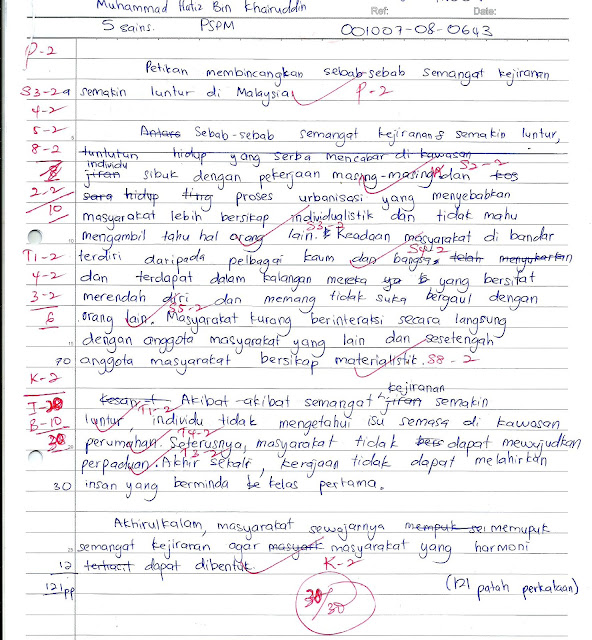 Muhammad Hafiz Bin Khairuddin Ref: Date:
5 Sains. PSPM 001007-08-0643
P-2
Petikan membincangkan sebab-sebab semangat kejiranan
S3-2 semakin luntur di Malaysia. P-2
4-2
5-2 Antara Sebab-sebab semangat kejiranan semakin luntur,
8-2 tuntutan hidup yang serba mencabar di kawasan
individu S2-2
8 jiran sibuk dengan pekerjaan masing-masing dan kos
2-2 sara hidup proses urbanisasi yang menyebabkan
10 masyarakat lebih bersikap individualistik dan tidak mahu
mengambil tahu hal orang lain. Keadaan masyarakat di bandar
T1-2 terdiri daripada pelbagai kaum dan bangsa telah menyukarkan
4-2 dan terdapat dalam kalangan mereka yang bersifat
3-2 merendah diri dan memang tidak suka bergaul dengan
6 orang lain. S5-2 Masyarakat kurang berinteraksi secara langsung
dengan anggota masyarakat yang lain dan sesetengah
70 anggota masyarakat bersikap materialistik. S8-2
K-2
kejiranan
Kesan Akibat-akibat semangat jiran semakin
B-10 luntur, T1-2 individu tidak mengetahui isu semasa di kawasan
perumahan. T4-2 Seterusnya, masyarakat tidak dapat mewujudkan
perpaduan. T3-2 Akhir sekali, kerajaan tidak dapat melahirkan
30 insan yang berminda kelas pertama.
Akhirulkalam, masyarakat sewajarnya memupuk
semangat kejiranan agar masyarakat yang harmoni
12 dapat dibentuk. K-2
121pp (121 patah perkataan)
30/30